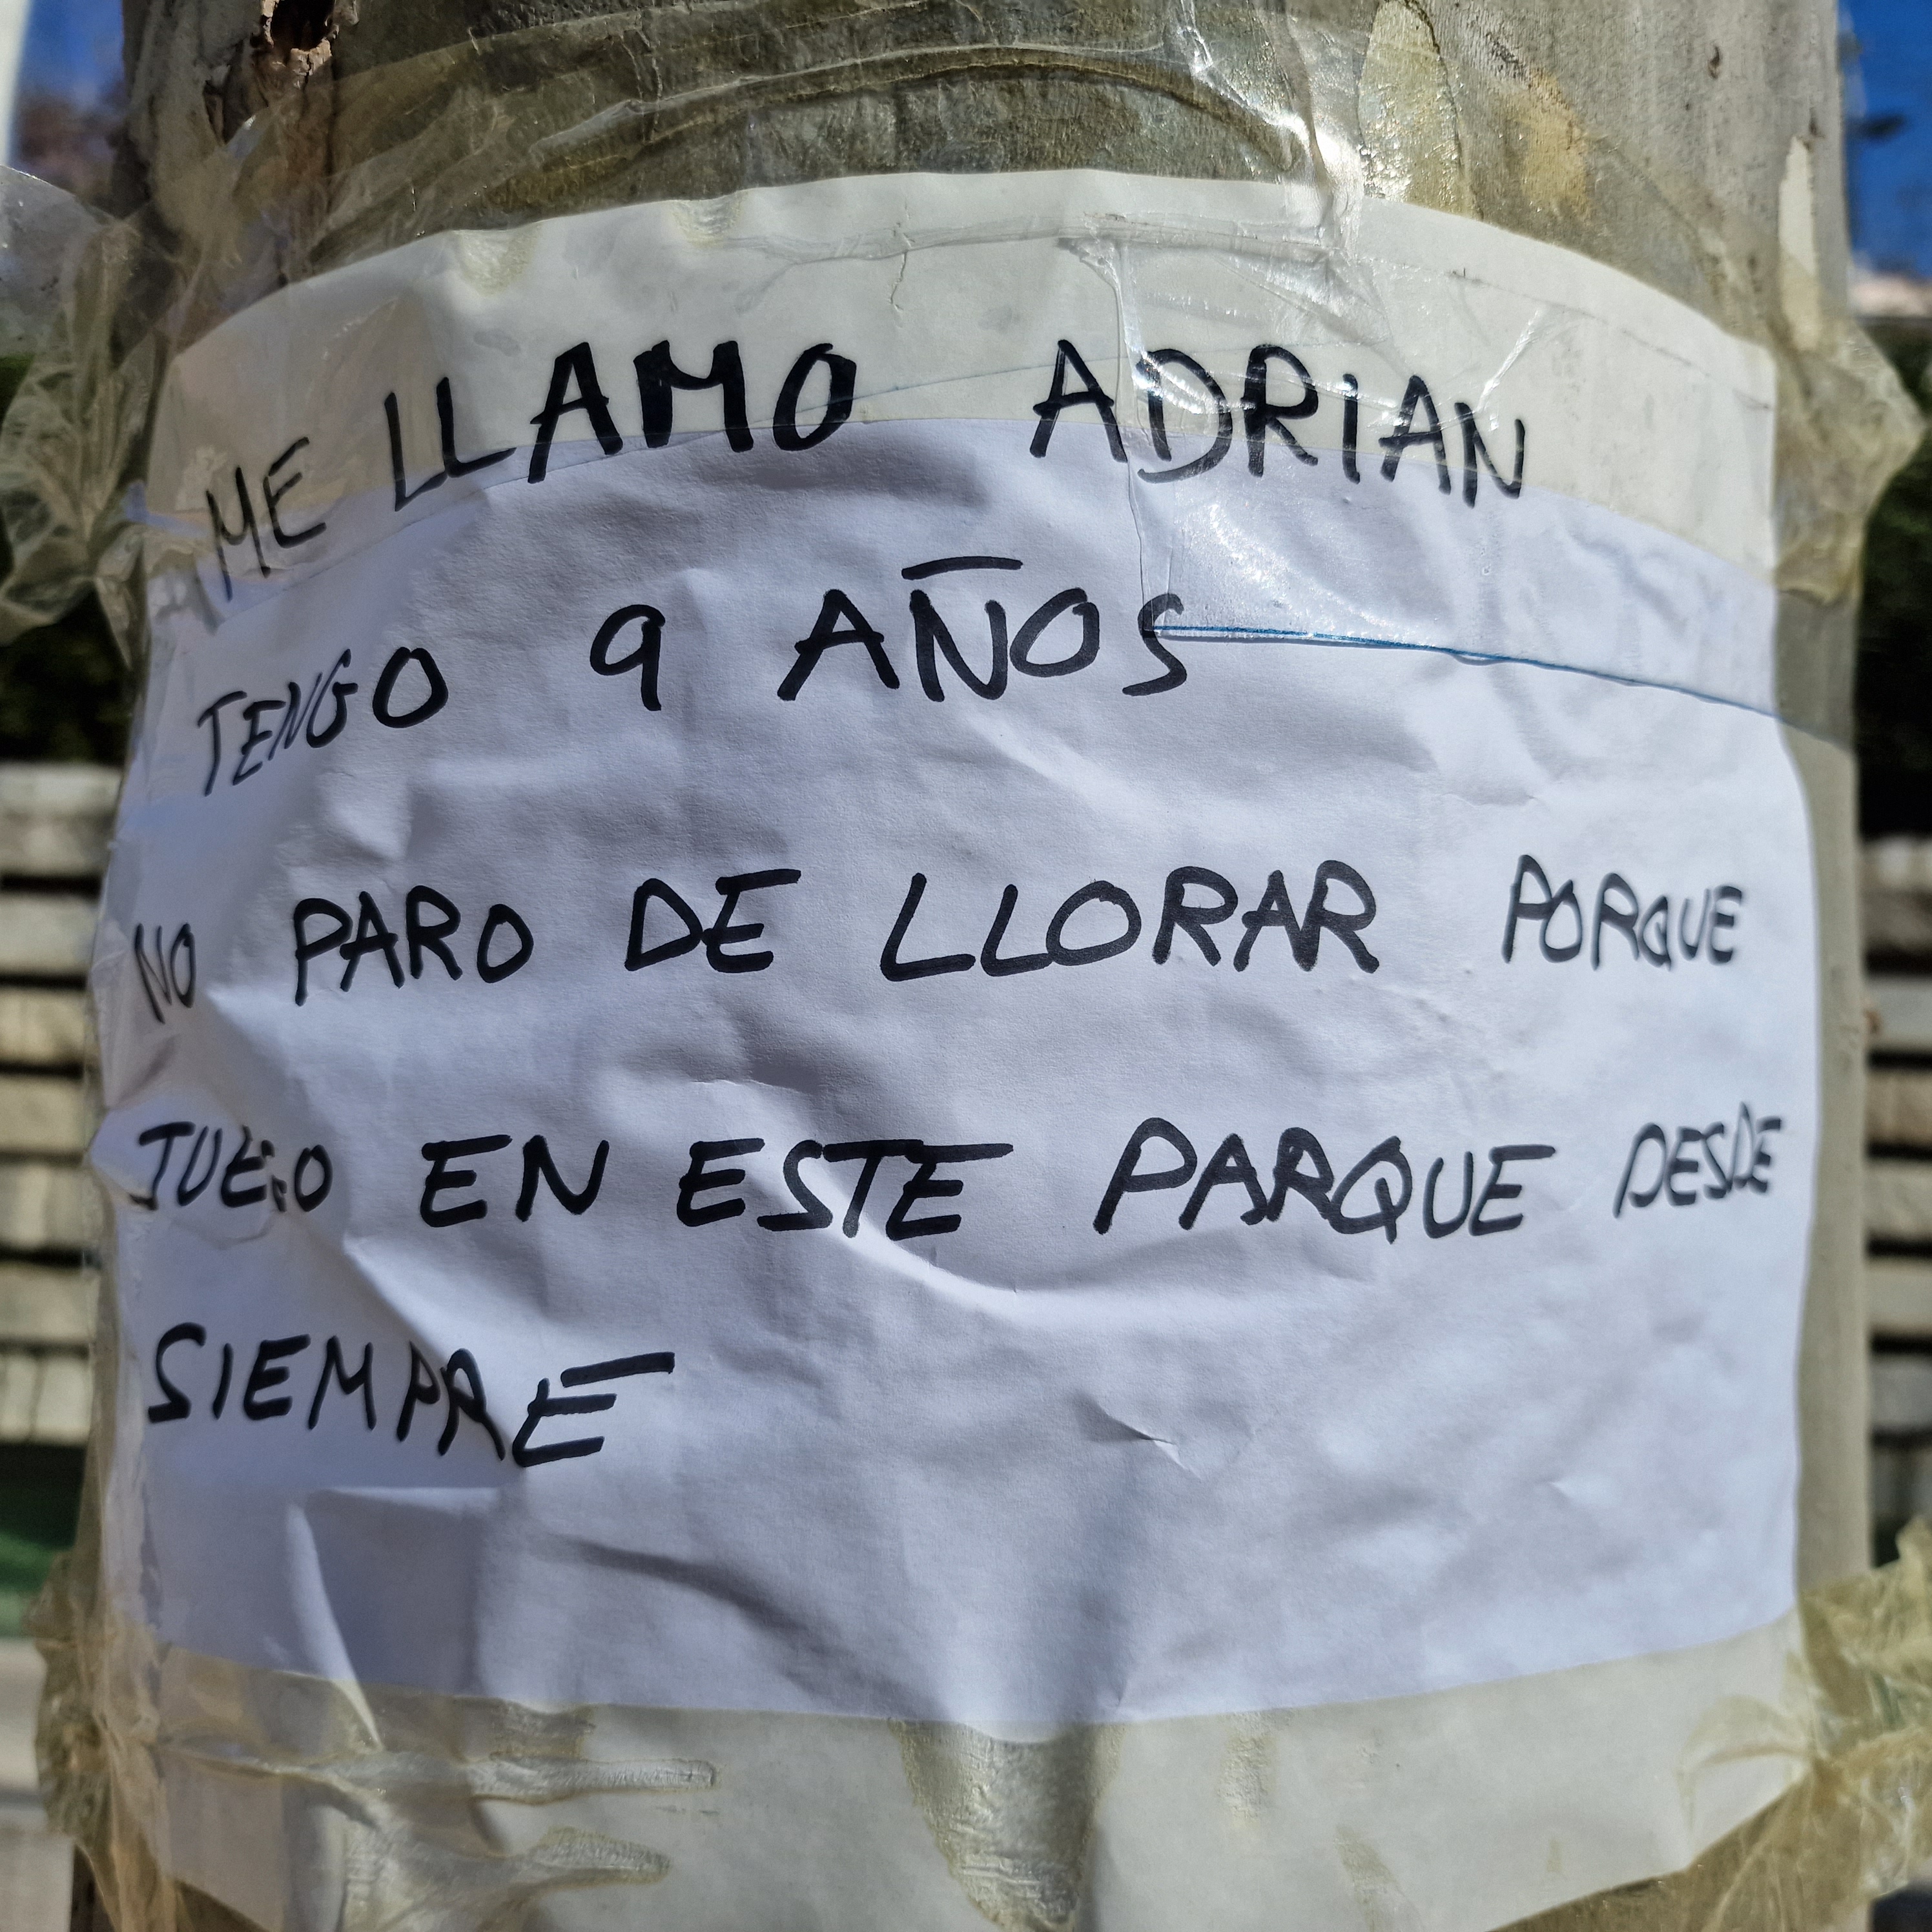 ME LLAMO ADRIAN
TENGO 9 AÑOS
NO PARO DE LLORAR PORQUE
JUEGO EN ESTE PARQUE DESDE
SIEMPRE